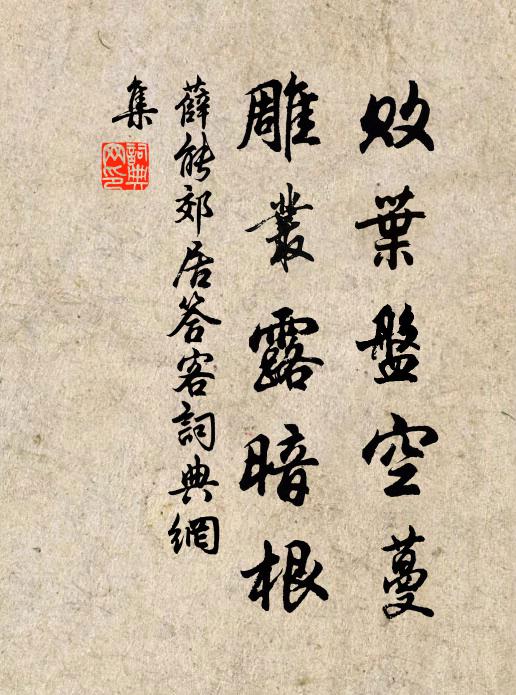 敗葉盤空蔓
雕叢露暗根
薛能郊居答客詞典網
集
詞典網印